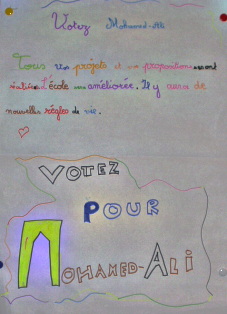 Votez Mohamed-Ali
Tous vos projets et vos propositions seront
réalisés. L'école sera améliorée. Il y aura de
nouvelles règles de vie.
VOTEZ
POUR
MOHAMED-ALI